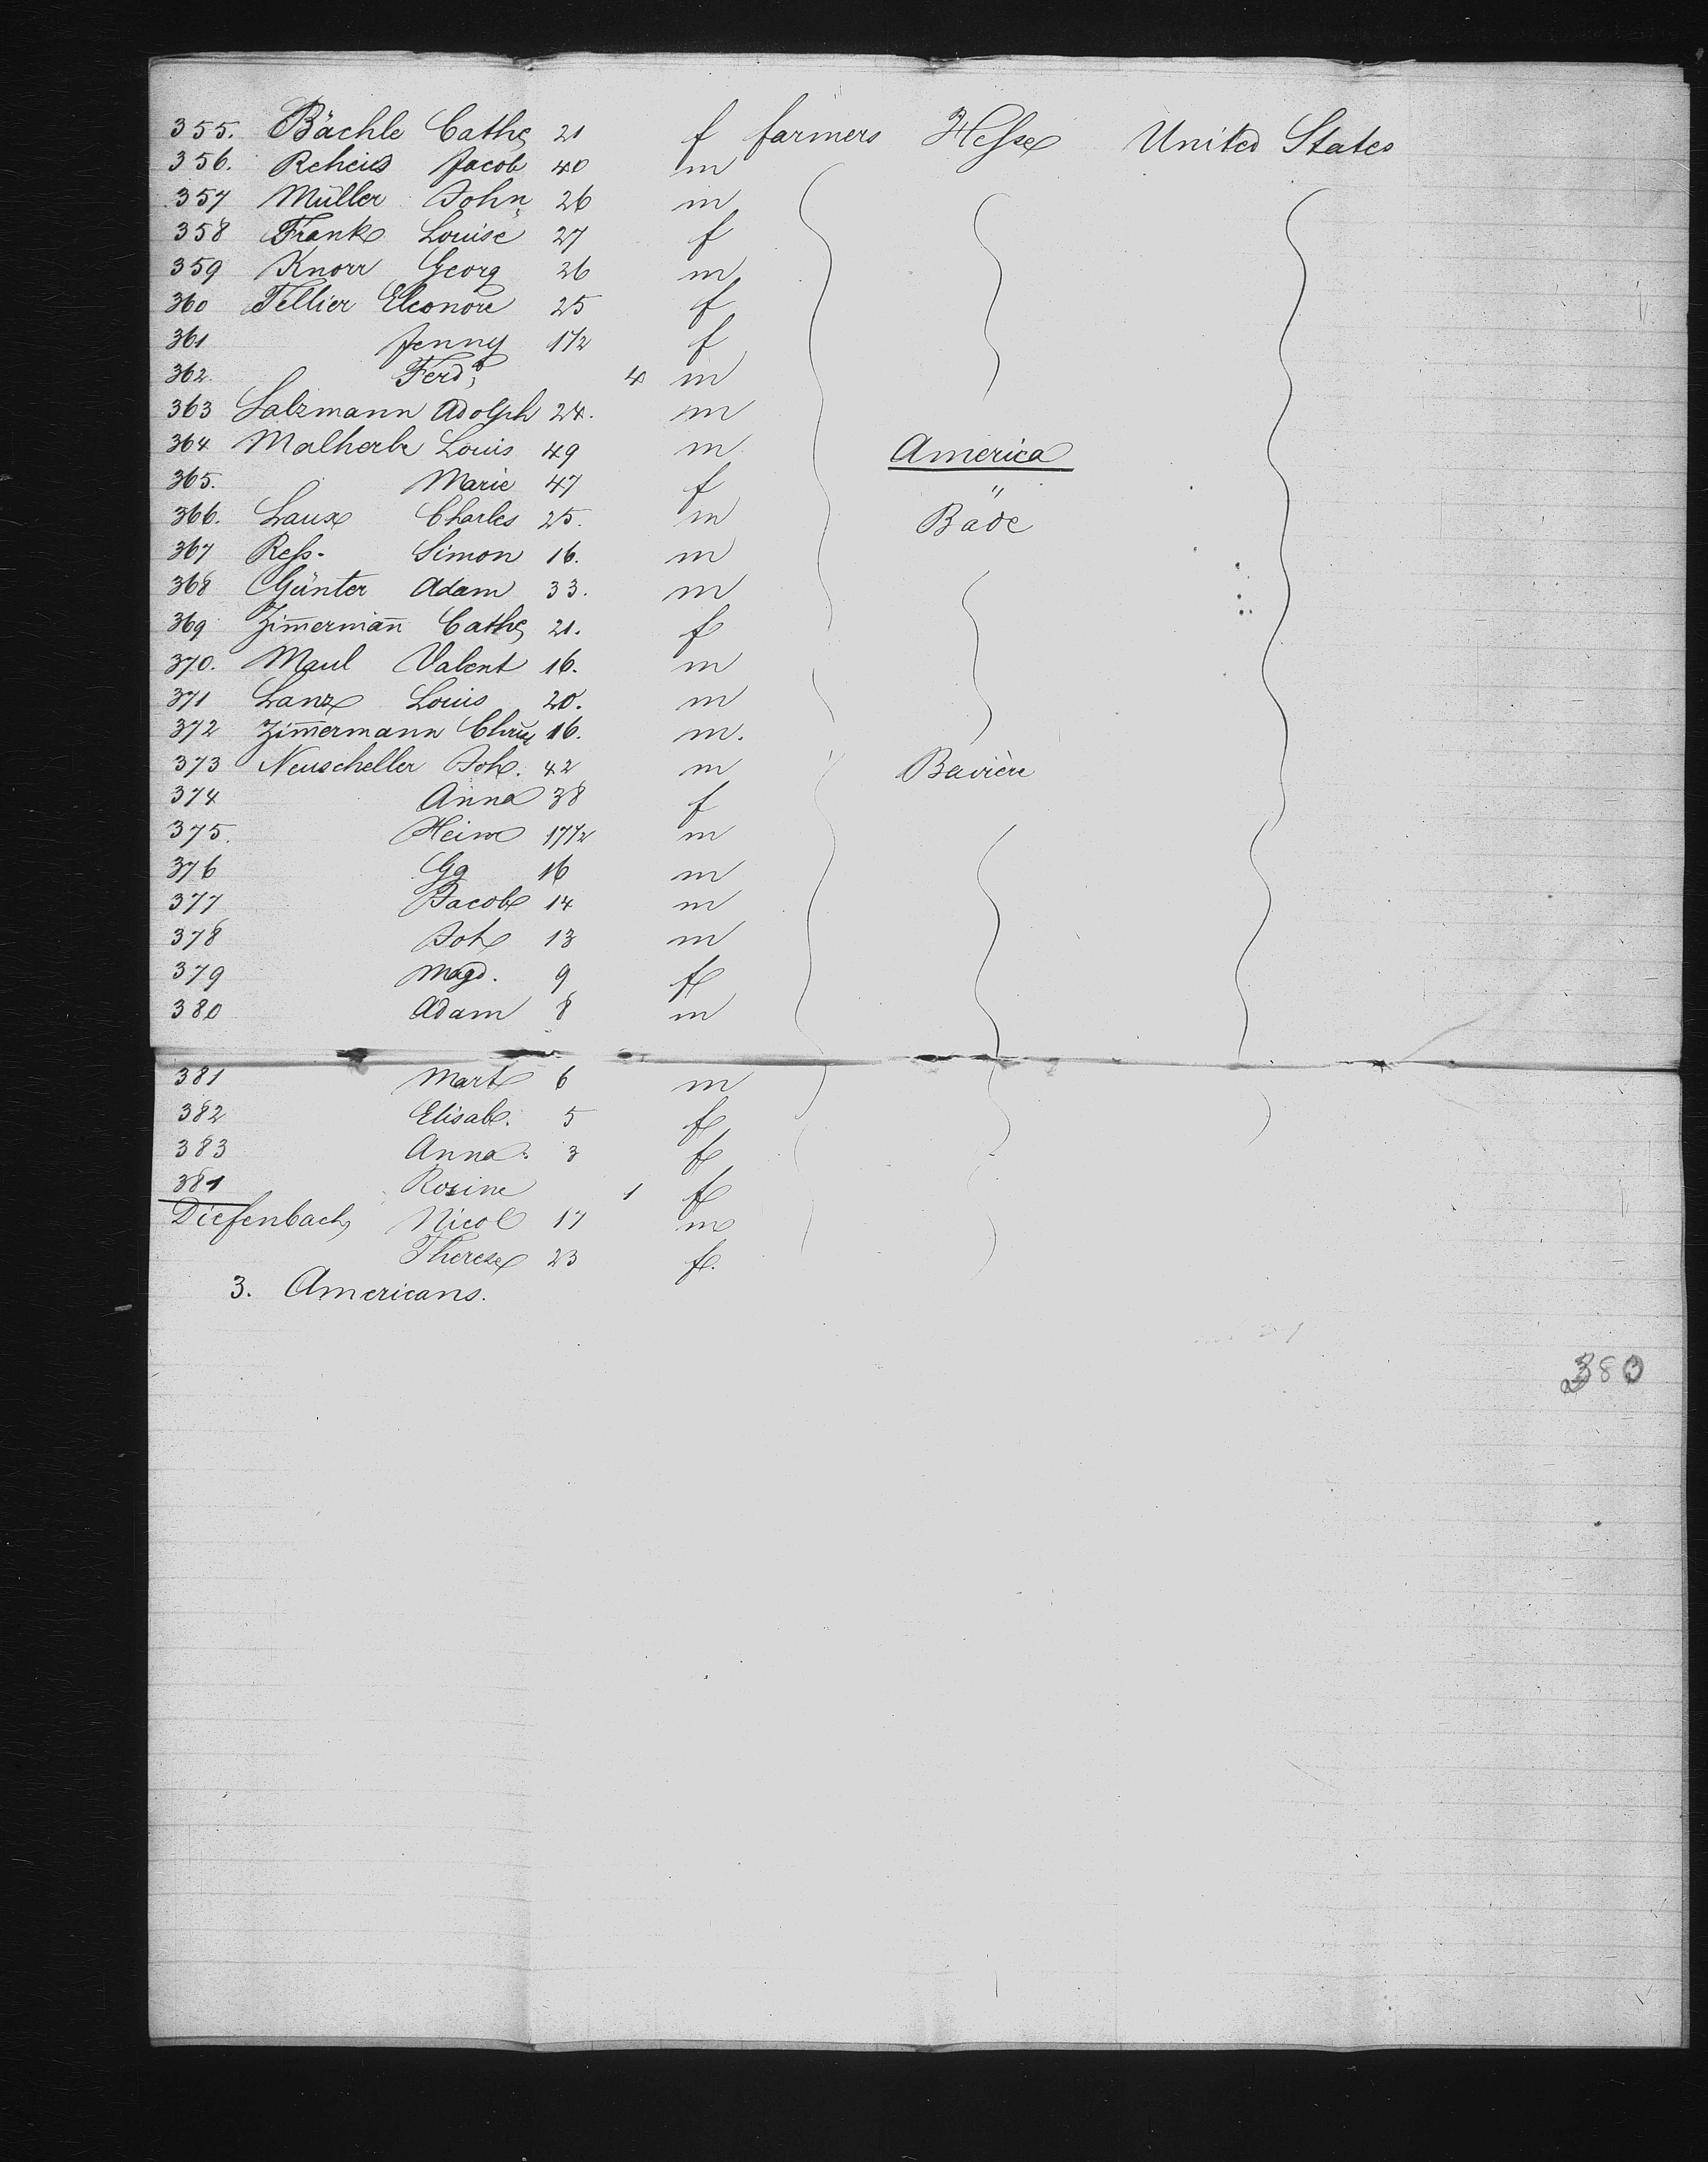 355. Bächle Cath 21 f farmers Hesse United States
356. Reheis Jacob 40 m
357 Müller John 26 m
358 Frank Louise 27 f
359 Knorr Georg 26 m
360 Tellier Eleonore 25 f
361 Jenny 1 1/2 f
362. Ferd. 4 m
363 Salzmann Adolph 24. m
364 Malherbe Louis 49 m America
365. Marie 47 f "
366. Laux Charles 25. m Bade
367 Reß. Simon 16. m
368 Günter Adam 33. m
369 Zimmermann Cath 21. f
370. Maul Valent 16. m
371 Lanz Louis 20. m
372 Zimmermann 16. m.
373 Neuscheller Joh. 42 m Bavière
374 Anna 38 f
375. Heinr 17 1/2 m
376 Gg 16 m
377 Jacob 14 m
378 Joh 13 m
379 Magd. 9 f
380 Adam 8 m
381 Mart 6 m
382 Elisab. 5 f
383 Anna. 3 f
381 Rosine 1 f
Diefenbach Nicol 17 m
Therese 23 f.
3. Americans.
380